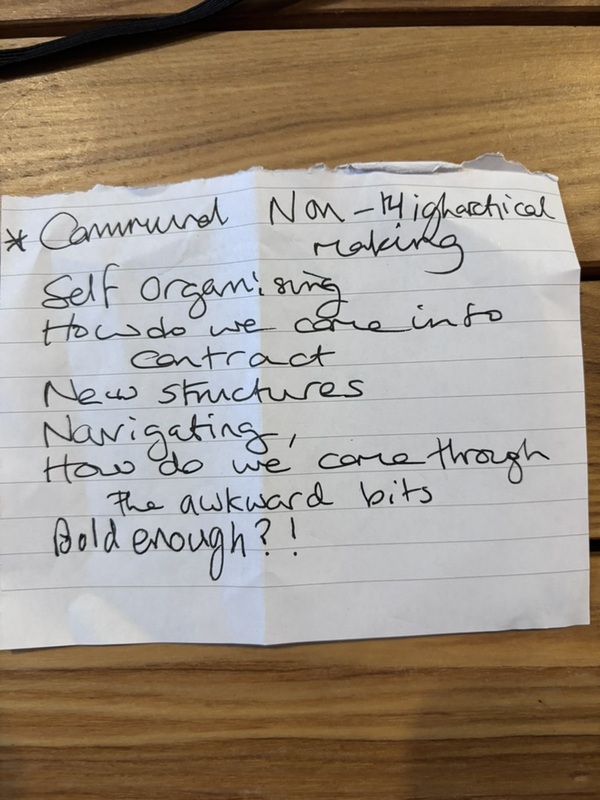 * Communal Non-Higharchical
making
Self Organising
How do we come into
contract
New structures
Navigating,
How do we come through
the awkward bits
Bold enough?!